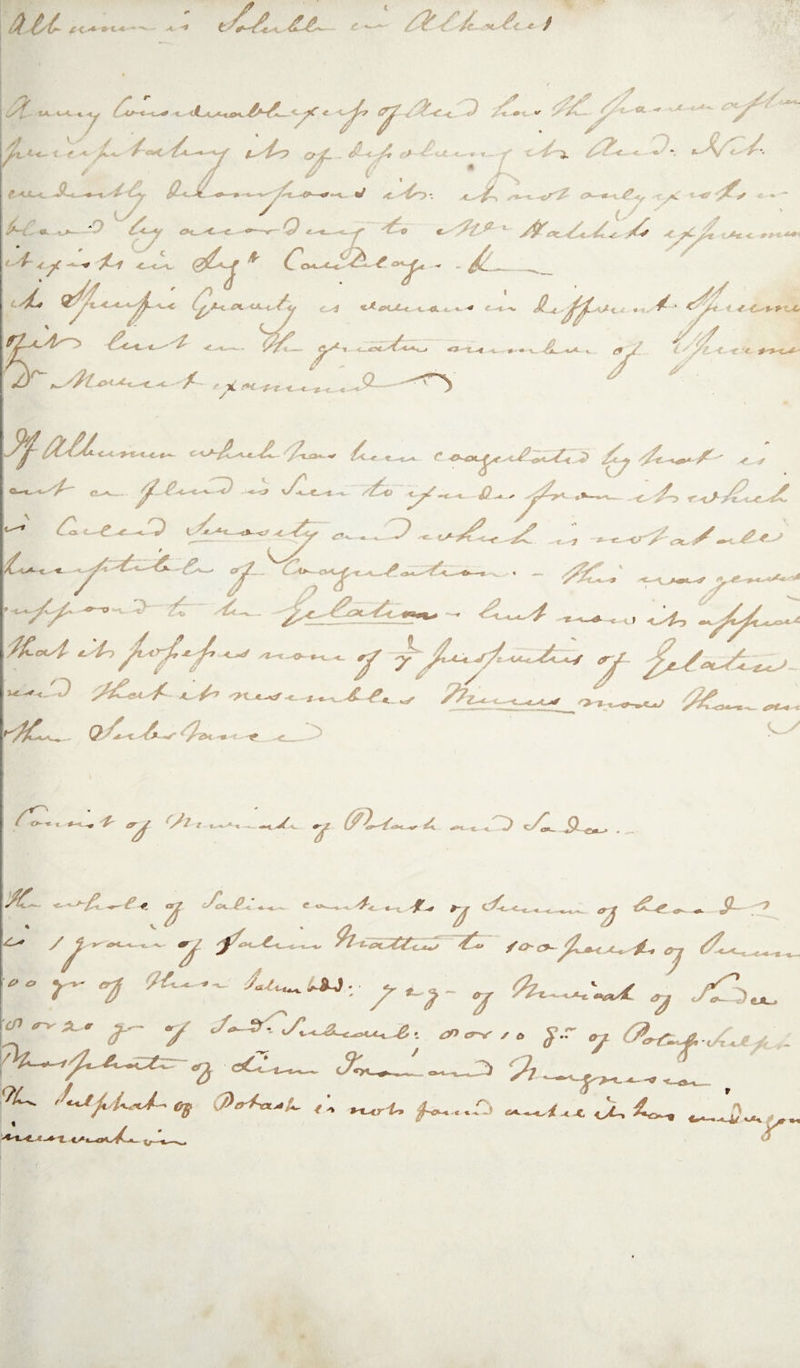 Albumen is Soluble in Alkalies
A very Considerable excess of Acid has the power after
precipitating its of dissolving it. Acid. Nit.
evidently decomposed it. it not only exists in
blood by according to Mr. Hatchets experimen
it exists in Cartilage. &
its Specific Gravity is various in different Specime
but in the greater number of Specime
Dr Marcet examined
If Albumen which has been coagulated by heat is
cut a fluid is Seen to exude from it which
is Called Serosity and which is not at all
susceptible of Coagulation. - this was
supposed to be Gelatine - but now it appears
that it possesses none of ye properties of Gelatine
and that it resembles Mucus more than an
other Substance
Consist of Muriate of Potash and Soda. -
The whole of Saline contents of Serum of blood
is 1 grain of Saline Matter to 100 parts of Serum
00 gr of these 72 gr of Muriat of Soda
or 20 gr of Sod. Subcarb. or 10 gr of Potass. Sulph
Phosphate of Lime Iron and Magnesia,
The Sulphat of Potash is not found until it has undergon
incineration